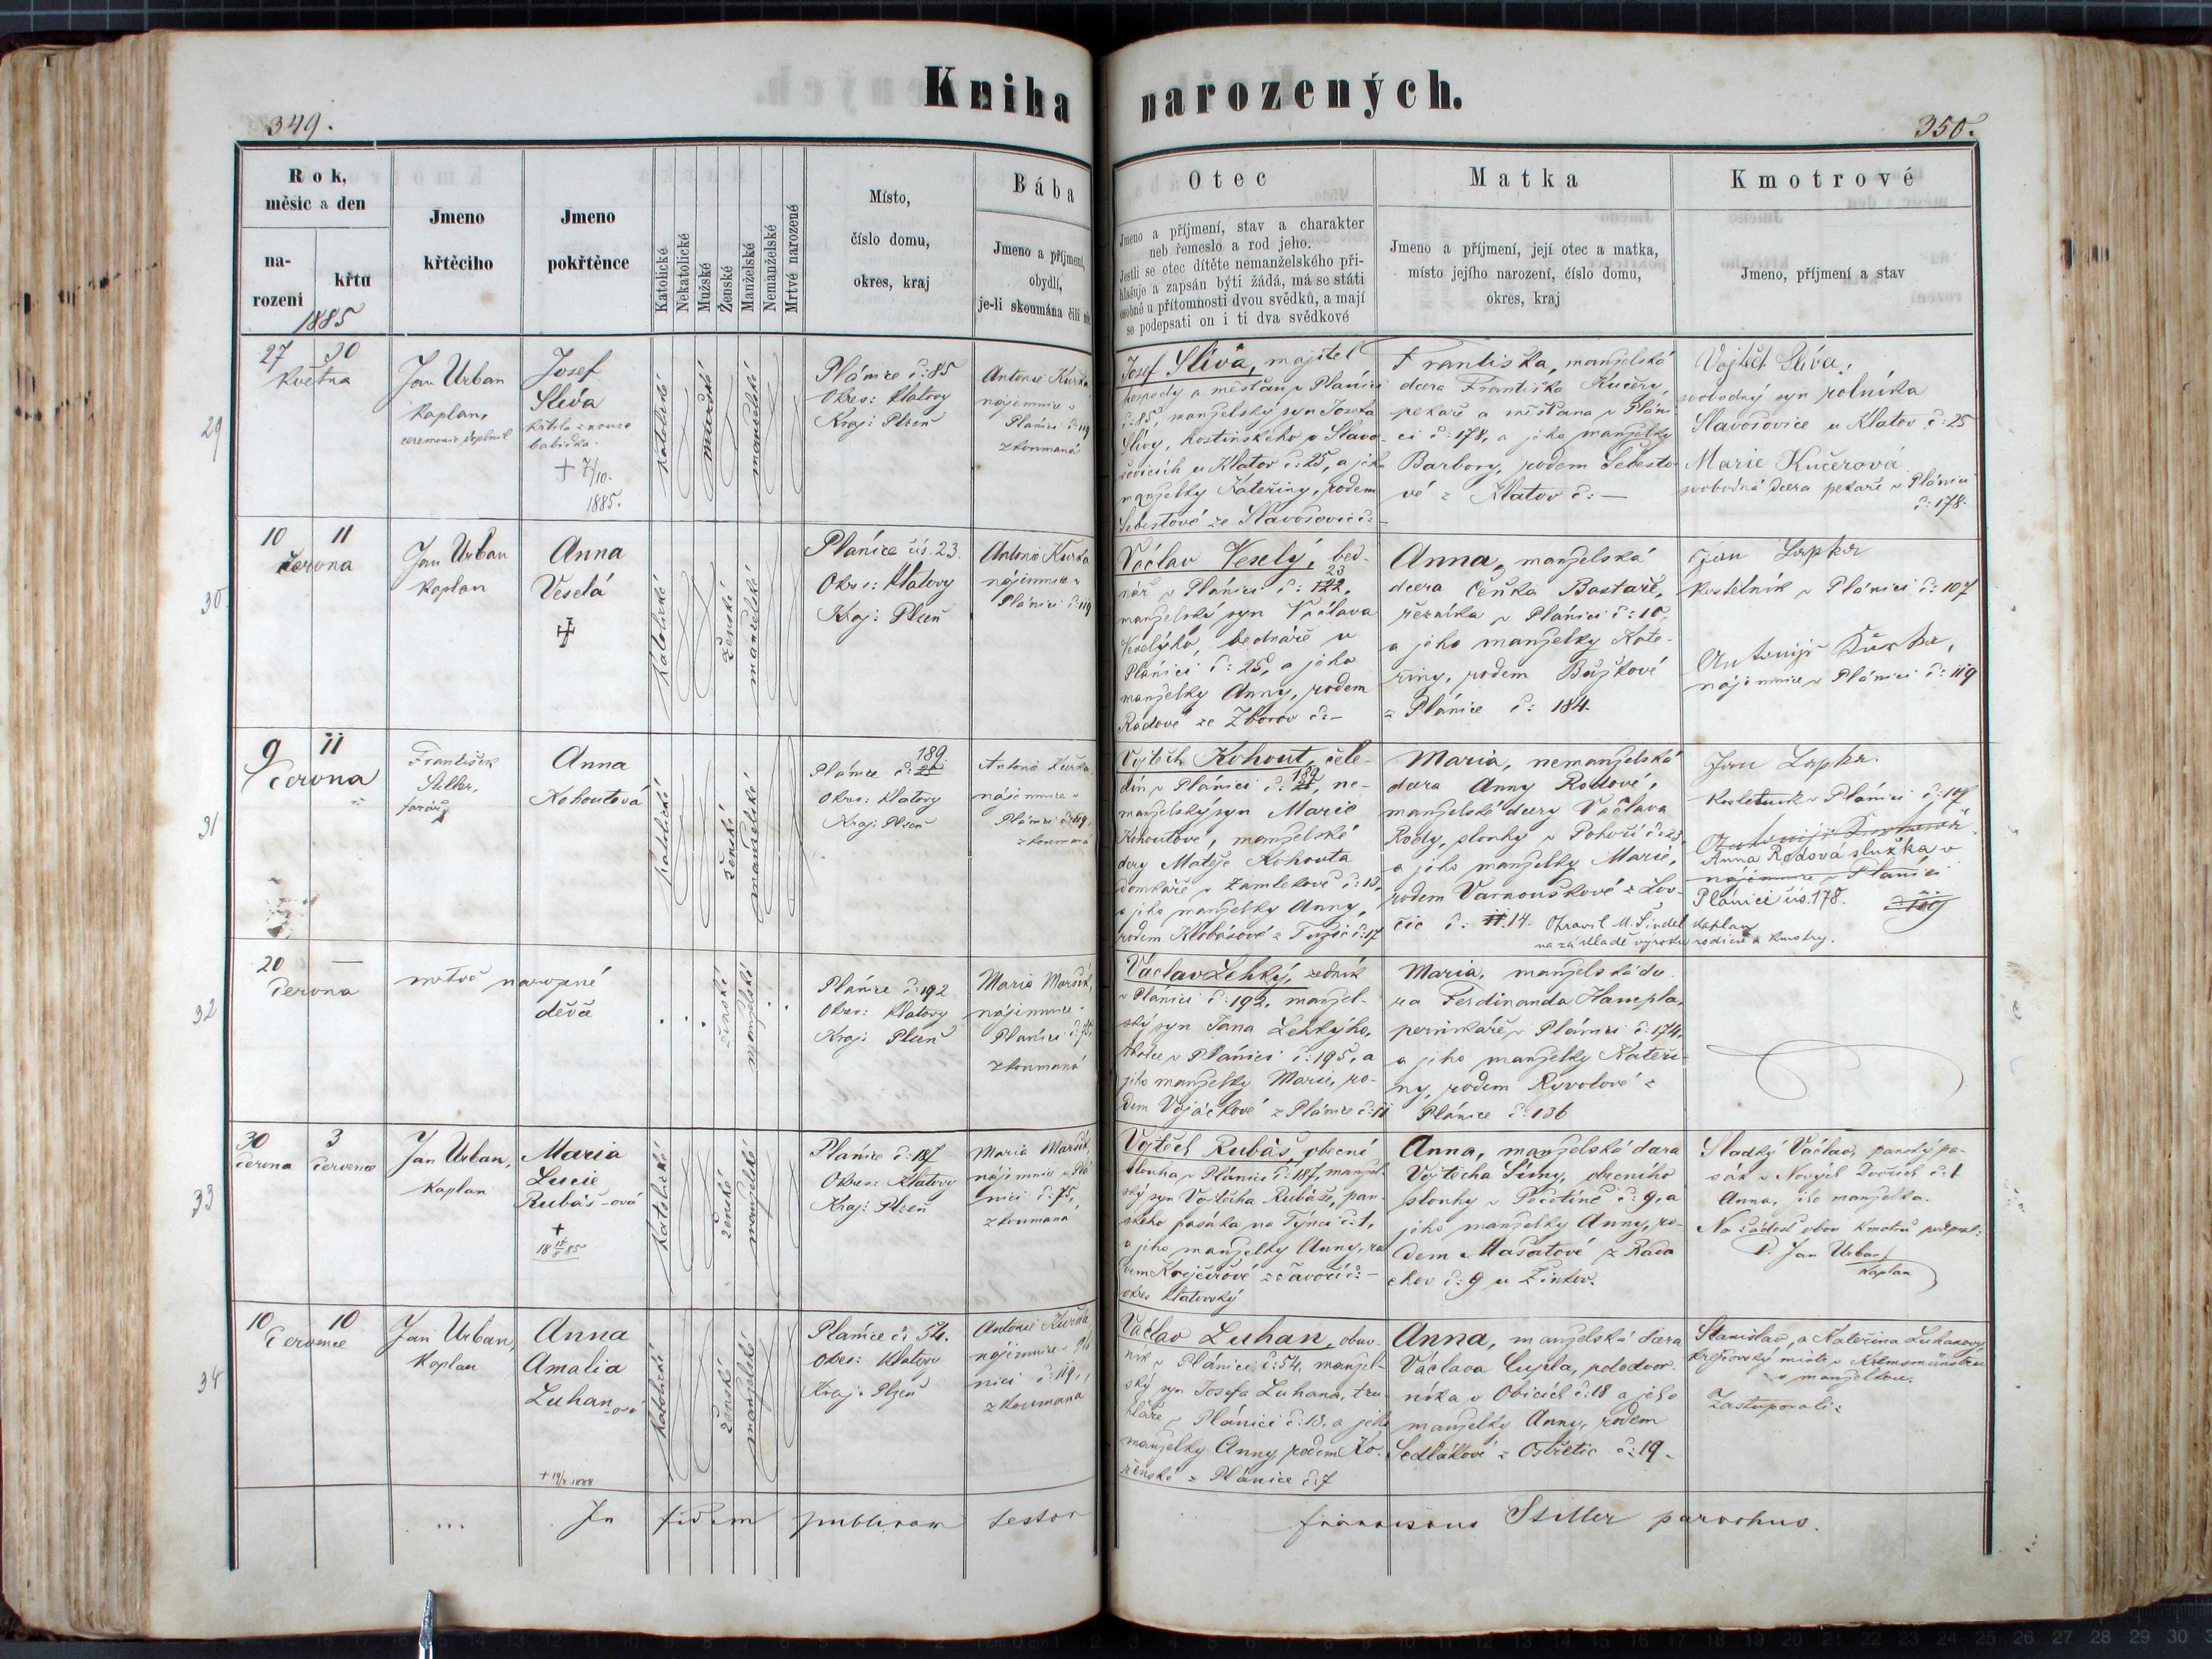 Kniha narozených.
349.
350.
Rok,
měsíc a den
na-
rození
křtu
1885
Jmeno
křtěcího
Jmeno
pokřtěnce
Katolické
Nekatolické
Mužské
Ženské
Manželské
Nemanželské
Mrtvé narozené
Místo,
číslo domu,
okres, kraj
Bába
Jmeno a příjmení,
obydlí,
je-li skoumána čili ne
Otec
Jmeno a příjmení, stav a charakter
neb řemeslo a rod jeho.
Jestli se otec dítěte nemanželského při-
hlašuje a zapsán býti žádá, má se státi
osobně u přítomnosti dvou svědků, a mají
se podepsati on i ti dva svědkové
Matka
Jmeno a příjmení, její otec a matka,
místo jejího narození, číslo domu,
okres, kraj
Kmotrové
Jmeno, příjmení a stav
29
27 30
Května
Jan Urban
Kaplan,
ceremonie doplnil
Josef
Slíva
křtila z nouze
babička.
+ 7/10.
1885.
katolické
mužské
manželské
Plánice č: 85
Okres: Klatovy
Kraj: Plzeň
Antonie Kurka
nájemnice v
Plánici č: 119
zkoumaná
Josef Slíva, majitel
hospody a měšťan v Plánici
č: 85, manželský syn Josefa
Slívy, hostinského v Slavo-
šovicích u Klatov č: 25, a jeho
manželky Kateřiny, rodem
Šebestové ze Slavošovic č: –
Františka, manželská
dcera Františka Kučery,
pekaře a měšťana v Pláni-
ci č: 178, a jeho manželky
Barbory, rodem Šebesto-
vé z Klatov č: –
Vojtěch Slíva,
svobodný syn rolníka
Slavošovice u Klatov č: 25
Marie Kučerová
svobodná dcera pekaře v Plánici
č: 178.
30
10 11
června
Jan Urban
Kaplan
Anna
Veselá
katolické
ženské
manželské
Plánice čís. 23.
Okres: Klatovy
Kraj: Plzeň
Antonie Kurka
nájemnice v
Plánici č: 119
Václav Veselý, bed-
23
nář v Plánici č: 122,
manželský syn Václava
Veselýho, bednáře v
Plánici č: 25, a jeho
manželky Anny, rodem
Rádové ze Zborov č: –
Anna, manželská
dcera Čeňka Bastaře,
řezníka v Plánici č: 10,
a jeho manželky Kate-
řiny, rodem Bužkové
z Plánice č: 184.
Jan Lapka
kostelník v Plánici č: 107
Antonie Kurka,
nájemnice v Plánici č: 119
31
9 11
června
František
Stiller,
farář
Anna
Kohoutová
katolické
ženské
manželské
189
Plánice č: 21
Okres: Klatovy
Kraj: Plzeň
Antonie Kurka
nájemnice v
Plánici č: 119,
zkoumaná
Vojtěch Kohout, čele-
189
dín v Plánici č: 21, ne-
manželský syn Marie
Kohoutové, manželské
dcery Matěje Kohouta
domkáře v Zamlekově č: 13,
a jeho manželky Anny,
rodem Klobásové z Tupic č: 17
Maria, nemanželská
dcera Anny Rodové,
manželské dcery Václava
Rody, slouhy v Pohoří č: 23
a jeho manželky Marie,
rodem Varnouškové z Lov-
čic č: 11. 14. Opravil M. Šindel kaplan
na základě výroku rodičů a kmotry.
Jan Lapka.
kostelník v Plánici č: 107
Anna Rodová služka v
nájemnice v Plánici
Plánici čís. 178. č: 119
32
20 –
června
mrtvě narozené
děvče
ženské
manželské
Plánice č: 192
Okres: Klatovy
Kraj: Plzeň
Maria Maršík,
nájemnice v
Plánici č: 75,
zkoumaná
Václav Lehký, zedník
v Plánici č: 192, manžel-
ský syn Jana Lehkýho,
tkalce v Plánici č: 195, a
jeho manželky Marie, ro-
dem Vojáčkové z Plánice č: 11
Maria, manželská dce-
ra Ferdinanda Hampla,
perníkáře v Plánici č: 174,
a jeho manželky Kateři-
ny, rodem Ryvolové z
Plánice č: 136
33
30 3
června července
Jan Urban,
Kaplan
Maria
Lucie
Rubáš-ová
+
katolické
ženské
manželské
Plánice č: 187
Okres: Klatovy
Kraj: Plzeň
Maria Maršík,
nájemnice v Plá-
nici č: 75,
zkoumaná
Vojtěch Rubáš, obecní
slouha v Plánici č: 187, manžel-
ský syn Vojtěcha Rubáše, pan-
ského pasáka na Týnci č: 1,
a jeho manželky Anny, ro-
dem Krejčírové z Javoří č: –
okres klatovský
Anna, manželská dcera
Vojtěcha Šímy, obecního
slouhy v Pocotíně č: 9, a
jeho manželky Anny, ro-
dem Mašatové z Rado-
chov č: 9 u Žinkov.
Sladký Václav, panský pa-
sák v Nových Dvořích č: 1
Anna, jeho manželka.
Na žádost obou kmotrů podepsal:
P. Jan Urban
Kaplan
34
10 10
července
Jan Urban,
Kaplan
Anna
Amalia
Luhan-ová
+ 19/2 1888
katolické
ženské
manželské
Plánice č: 54.
Okres: Klatovy
Kraj: Plzeň
Antonie Kurka,
nájemnice v Plá-
nici č: 119,
zkoumaná
Václav Luhan, obuv-
ník v Plánici č: 54, manžel-
ský syn Josefa Luhana, tru-
hláře v Plánici č: 13, a jeho
manželky Anny rodem Ko-
řenské z Plánice č: 7
Anna, manželská dcera
Václava Cupla, pododvor-
níka v Obicích č: 18 a jeho
manželky Anny, rodem
Sedlákové z Ostřetic č: 19.
Stanislav, a Kateřina Luhanovy,
krejčovský mistr v Kremsmünstru
s manželkou.
Zastupovali:
In fidem publicam testor
franciscus Stiller parochus.